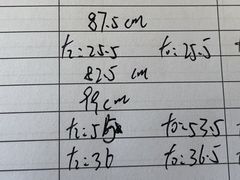 87.5 cm
t₂=25.5 t₀=25.5
82.5 cm
99 cm
t₁=55 t₀=53.5
t₂=36 t₀=36.5